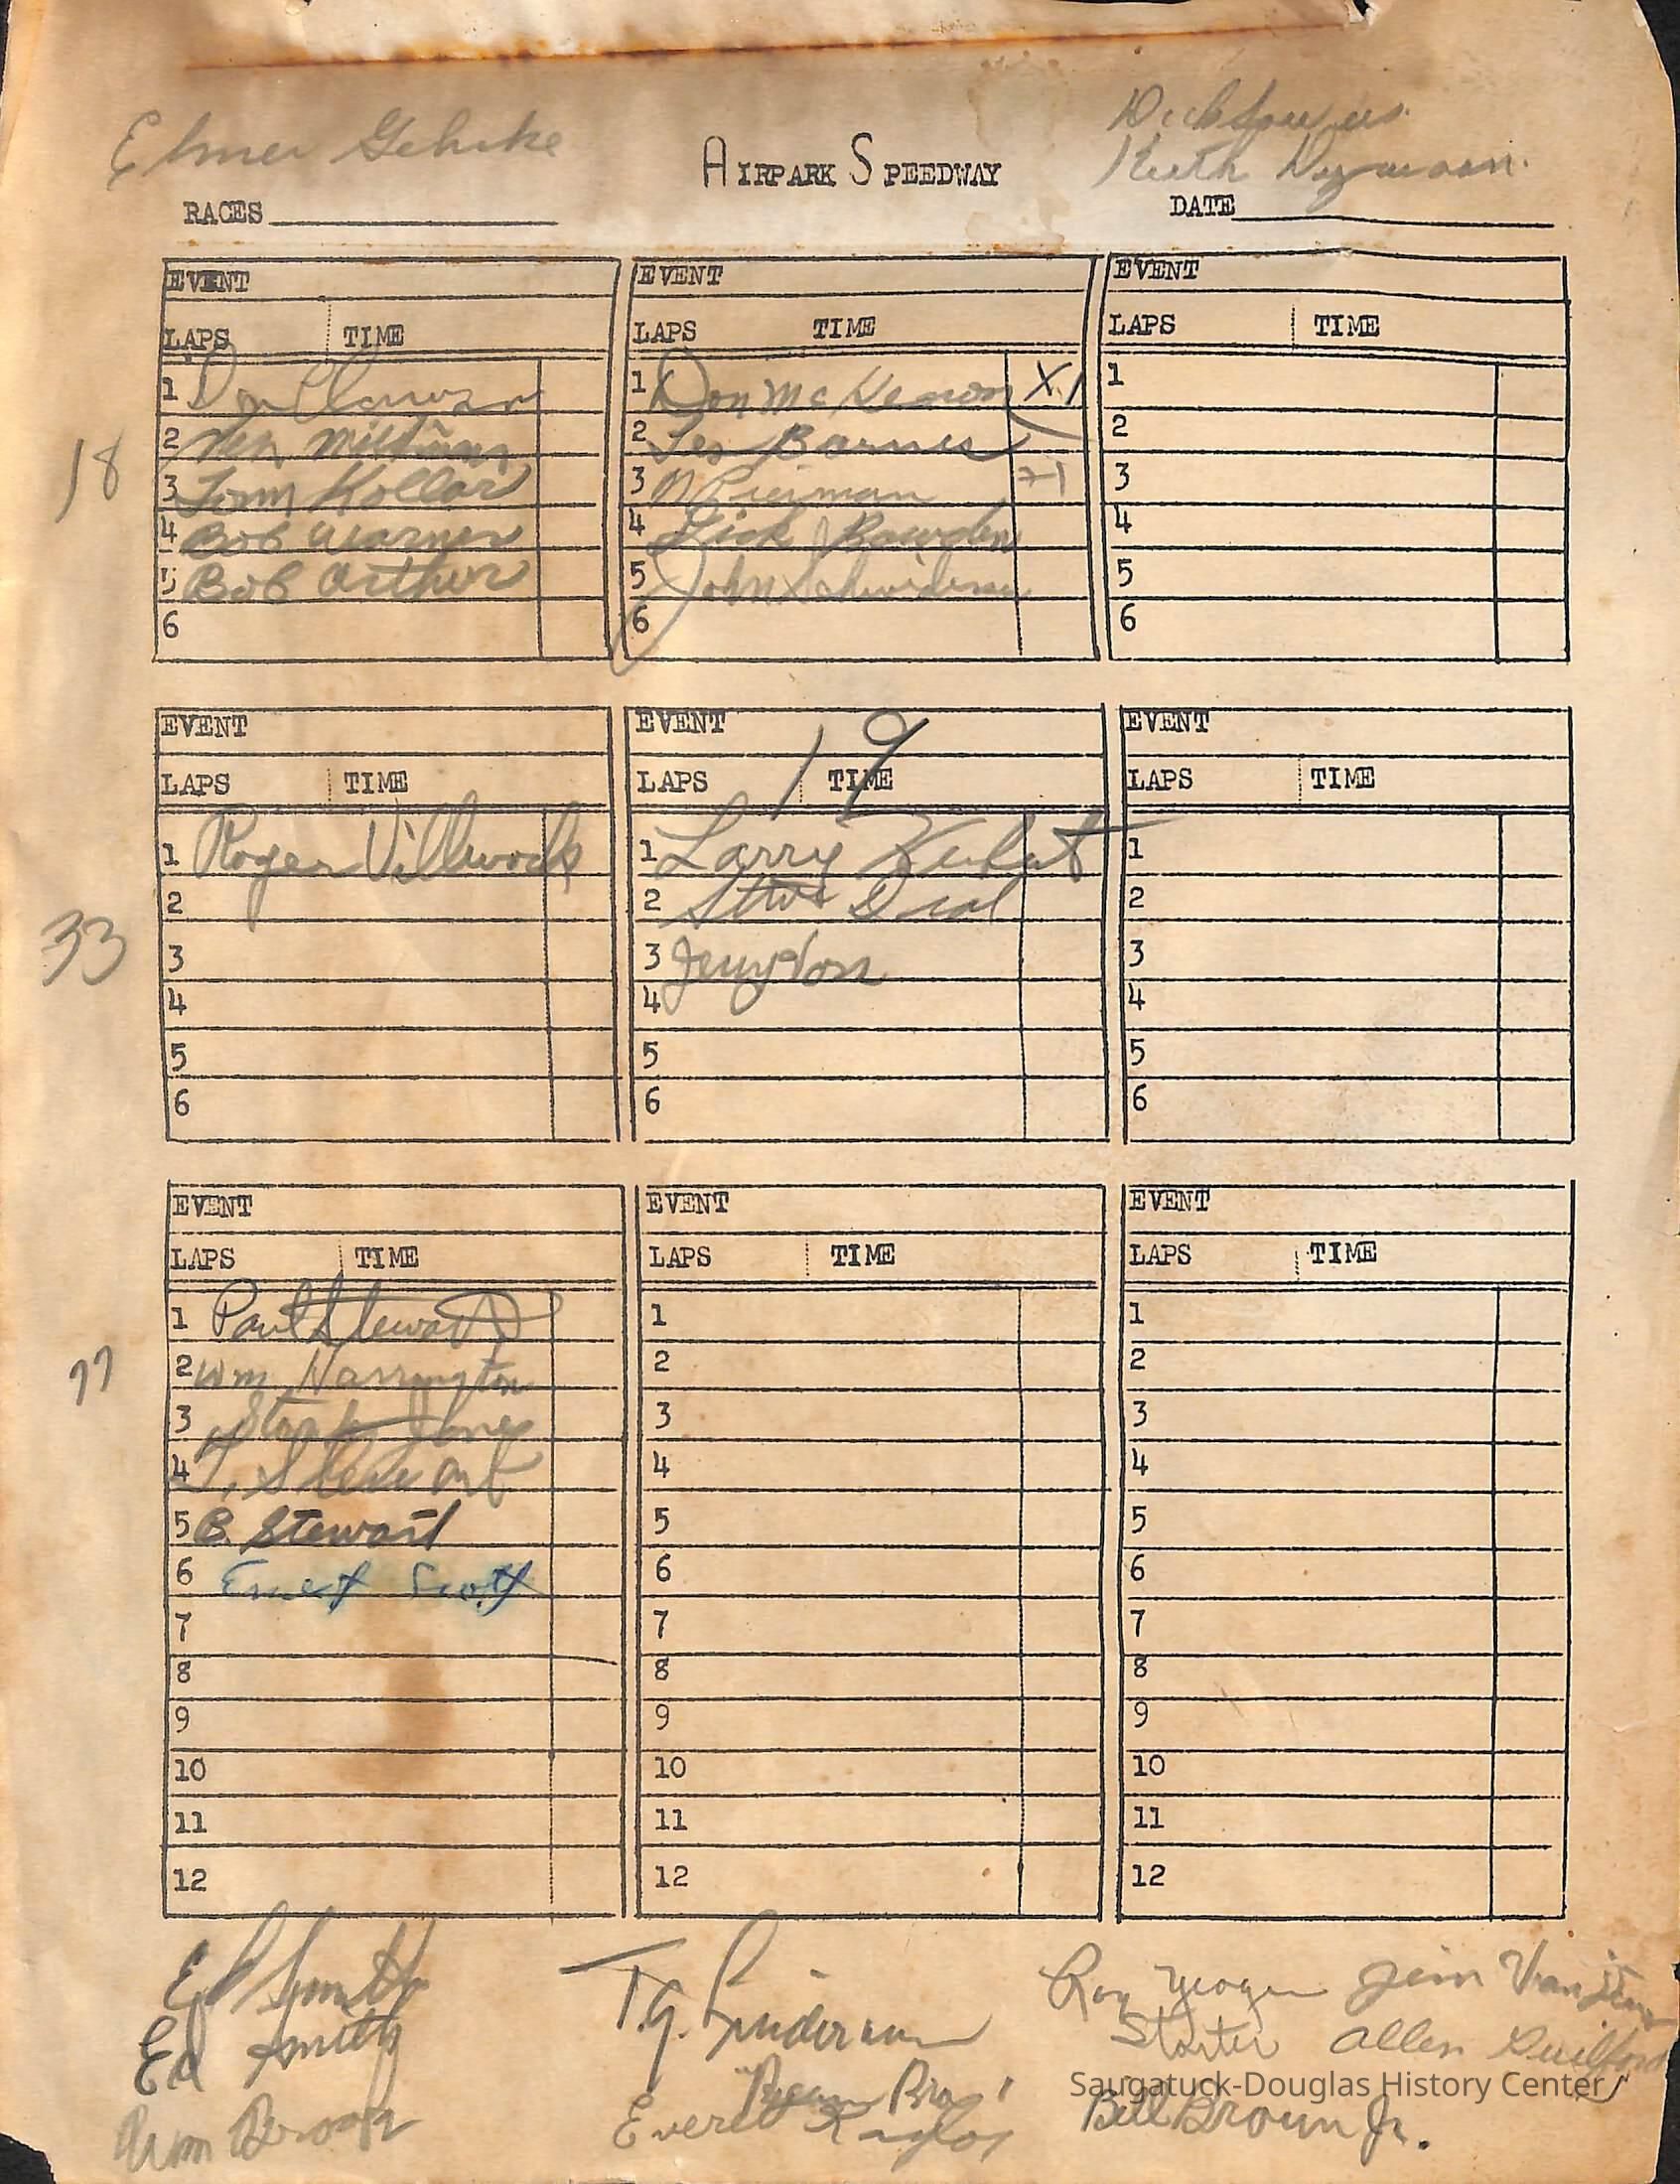 Elmer Gehrke
Ruth
AIRPARK SPEEDWAY
RACES
DATE
EVENT
LAPS TIME
1 Don
2 Ken
3 Tom Kollar
4 Bob Warner
5 Bob Arthur
6
18
EVENT
LAPS TIME
1 Don Mc X1
2 Les Barnes
3 Pierman
4 Dick Bowden
5 John
6
EVENT
LAPS TIME
1
2
3
4
5
6
EVENT
LAPS TIME
1 Roger Villwock
2
3
4
5
6
33
EVENT
19
LAPS TIME
1 Larry
2 Steve Dial
3 Jerry
4
5
6
EVENT
LAPS TIME
1
2
3
4
5
6
EVENT
LAPS TIME
1 Paul Stewart
2 Wm Harrington
3 Jones
4 T. Stewart
5 B. Stewart
6 Ernest Scott
7
8
9
10
11
12
77
EVENT
LAPS TIME
1
2
3
4
5
6
7
8
9
10
11
12
EVENT
LAPS TIME
1
2
3
4
5
6
7
8
9
10
11
12
Ed Smith
Ed Smith
T.G.
Bros
Everet
Roy Yeager Jim Van
Starter Allen Guilford
Saugatuck-Douglas History Center
Bill Brown Jr.